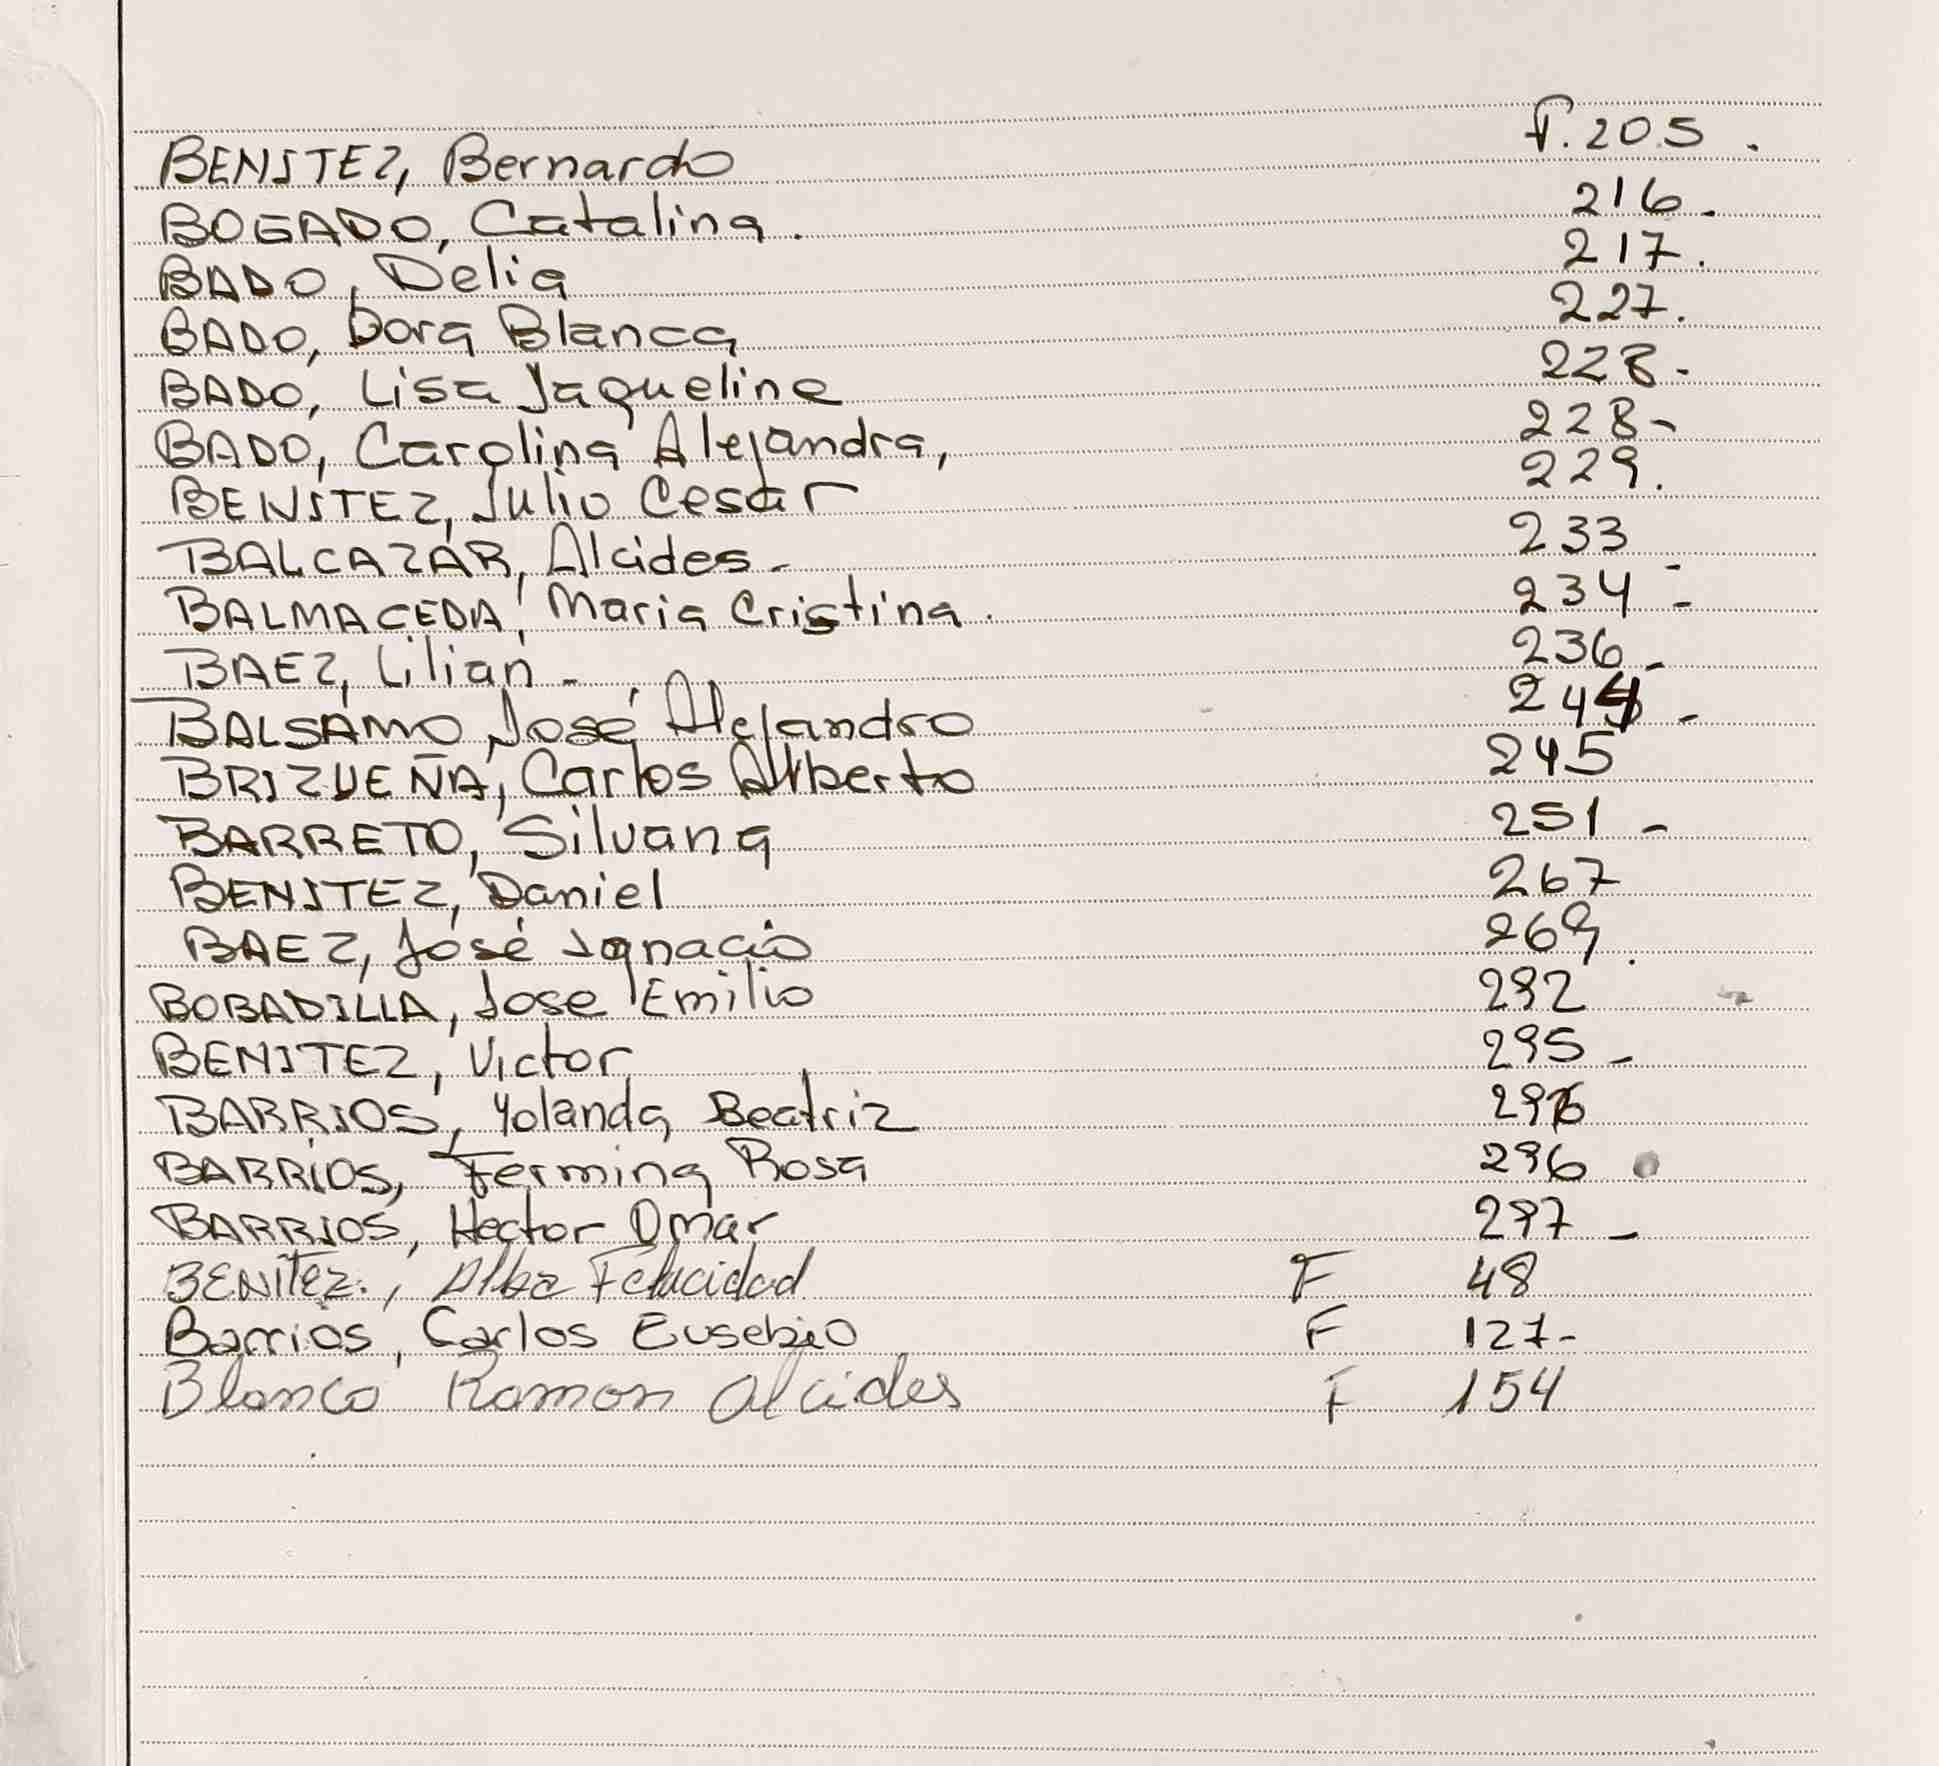 BENITEZ, Bernardo F. 205.
BOGADO, Catalina. 216.
BADO, Delia 217.
BADO, Dora Blanca 227.
BADO, Lisa Jaqueline 228-
BADO, Carolina Alejandra, 228-
BENITEZ, Julio Cesar 229.
BALCAZAR, Alcides- 233
BALMACEDA, Maria Cristina. 234-
BAEZ, Lilian- 236-
BALSAMO, José Alejandro 244-
BRIZUEÑA, Carlos Alberto 245
BARRETO, Silvana 251-
BENITEZ, Daniel 267
BAEZ, José Ignacio 269.
BOBADILLA, Jose Emilio 292
BENITEZ, Victor 295-
BARRIOS, Yolanda Beatriz 296
BARRIOS, Fermina Rosa 296
BARRIOS, Hector Omar 297-
BENITEZ., Alba Felicidad F 48
Barrios, Carlos Eusebio F 127-
Blanco Ramon Alcides F 154